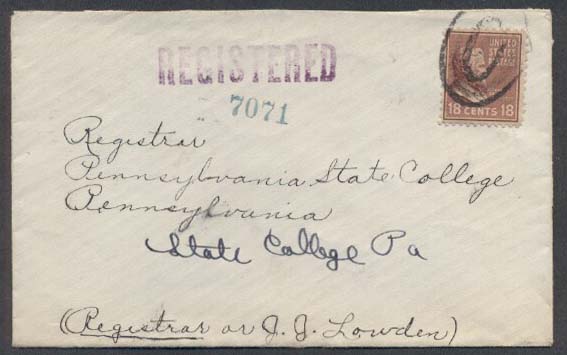 REGISTERED
7071
UNITED
STATES
POSTAGE
18 CENTS 18
Registrar
Pennsylvania State College
Pennsylvania
State College Pa
(Registrar or J. J. Lowden)